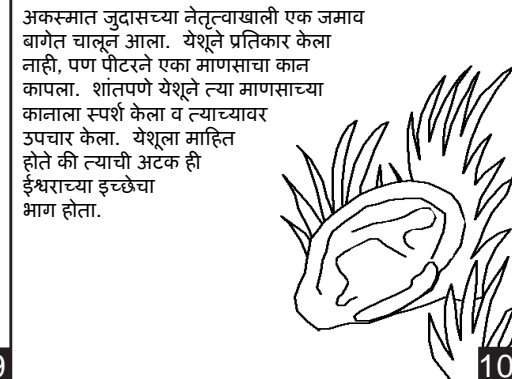 अकस्मात जुदासच्या नेतृत्वाखाली एक जमाव
बागेत चालून आला.  येशूने प्रतिकार केला
नाही, पण पीटरने एका माणसाचा कान
कापला.  शांतपणे येशूने त्या माणसाच्या
कानाला स्पर्श केला व त्याच्यावर
उपचार केला.  येशूला माहित
होते की त्याची अटक ही
ईश्वराच्या इच्छेचा
भाग होता.
9
10